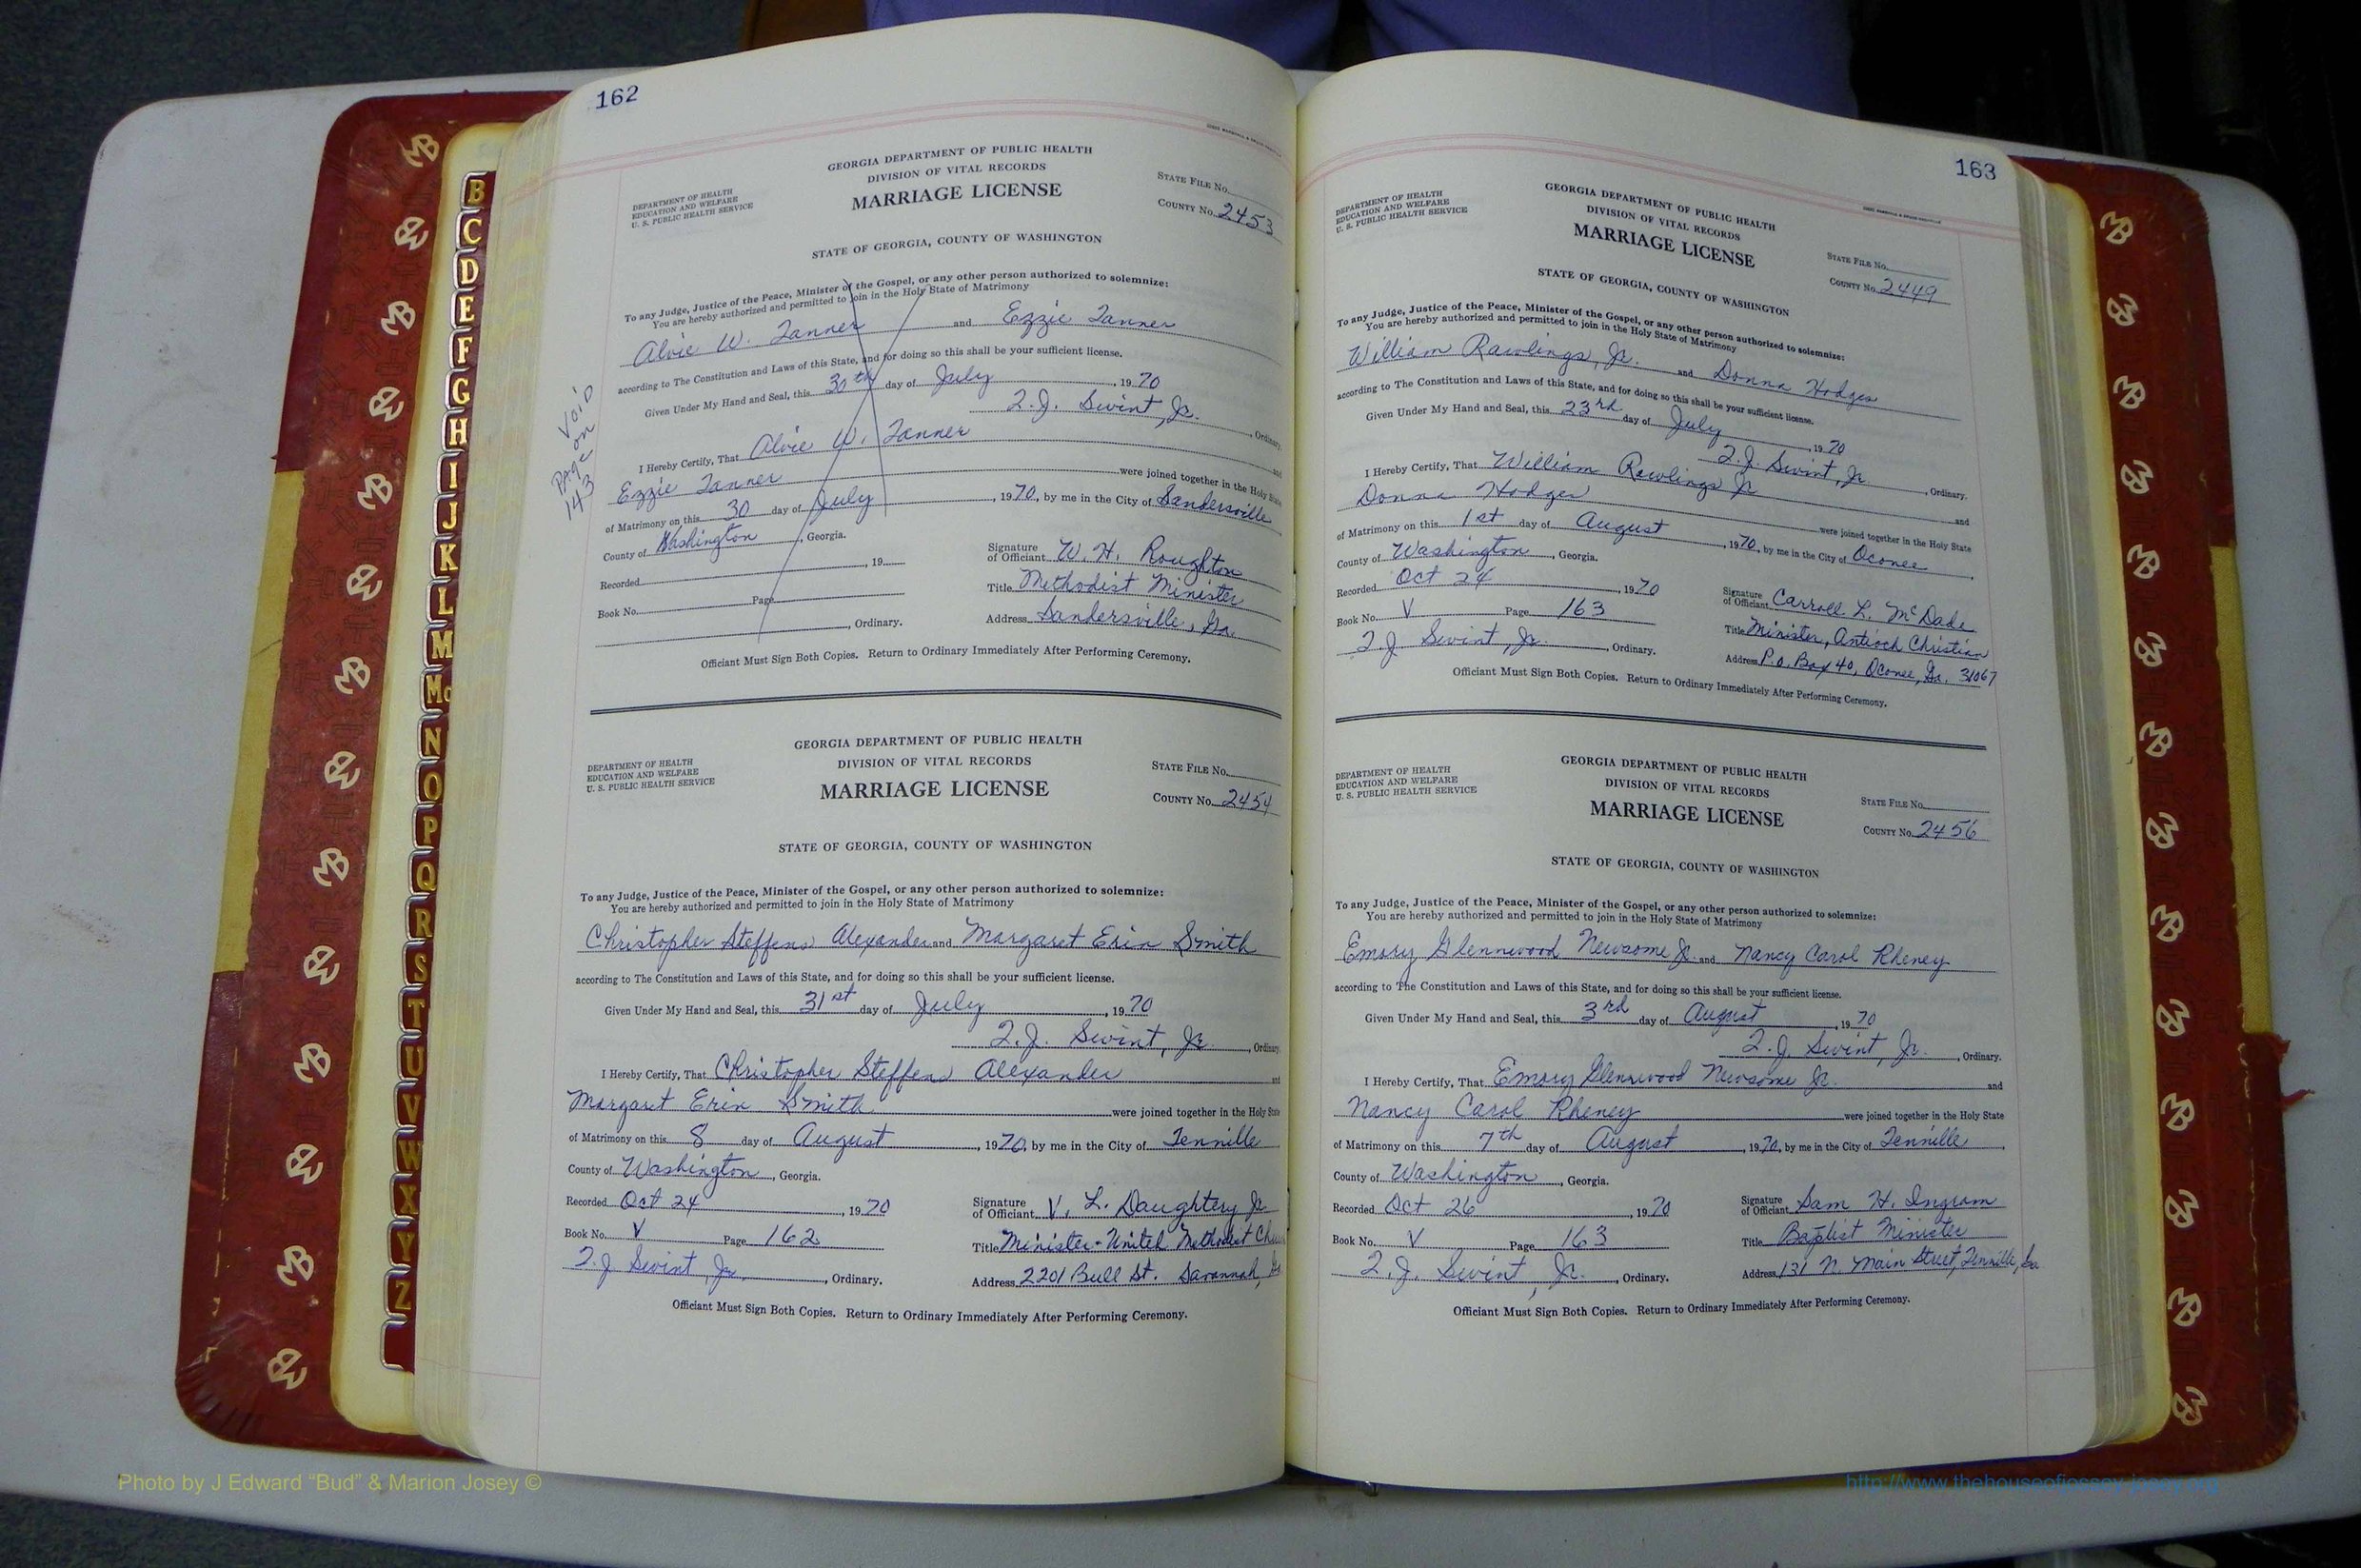 B
C
D
E
F
G
H
I
J
K
L
M
Mc
N
O
P
Q
R
S
T
U
V
W
X
Y
Z
162
GEORGIA DEPARTMENT OF PUBLIC HEALTH
DIVISION OF VITAL RECORDS
MARRIAGE LICENSE
DEPARTMENT OF HEALTH
EDUCATION AND WELFARE
U. S. PUBLIC HEALTH SERVICE
STATE FILE No.
COUNTY No. 2453
STATE OF GEORGIA, COUNTY OF WASHINGTON
To any Judge, Justice of the Peace, Minister of the Gospel, or any other person authorized to solemnize:
You are hereby authorized and permitted to join in the Holy State of Matrimony
Alvie W. Tanner and Ezzie Tanner
according to The Constitution and Laws of this State, and for doing so this shall be your sufficient license.
Given Under My Hand and Seal, this 30th day of July, 1970
T.J. Swint, Jr., Ordinary
I Hereby Certify, That Alvie W. Tanner and
Ezzie Tanner were joined together in the Holy State
of Matrimony on this 30 day of July, 1970, by me in the City of Sandersville
County of Washington, Georgia.
Recorded , 19
Book No. Page
, Ordinary.
Signature
of Officiant W. H. Roughton
Title Methodist Minister
Address Sandersville, Ga.
Officiant Must Sign Both Copies. Return to Ordinary Immediately After Performing Ceremony.
VOID
on
PAge
143
GEORGIA DEPARTMENT OF PUBLIC HEALTH
DIVISION OF VITAL RECORDS
MARRIAGE LICENSE
DEPARTMENT OF HEALTH
EDUCATION AND WELFARE
U. S. PUBLIC HEALTH SERVICE
STATE FILE No.
COUNTY No. 2454
STATE OF GEORGIA, COUNTY OF WASHINGTON
To any Judge, Justice of the Peace, Minister of the Gospel, or any other person authorized to solemnize:
You are hereby authorized and permitted to join in the Holy State of Matrimony
Christopher Steffens Alexander and Margaret Erin Smith
according to The Constitution and Laws of this State, and for doing so this shall be your sufficient license.
Given Under My Hand and Seal, this 31st day of July, 1970
T.J. Swint, Jr., Ordinary
I Hereby Certify, That Christopher Steffens Alexander and
Margaret Erin Smith were joined together in the Holy State
of Matrimony on this 8 day of August, 1970, by me in the City of Tennille
County of Washington, Georgia.
Recorded Oct 24, 1970
Book No. V Page 162
T.J. Swint, Jr., Ordinary.
Signature
of Officiant V. L. Daughtery Jr
Title Minister - United Methodist
Address 2201 Bull St. Savannah,
Officiant Must Sign Both Copies. Return to Ordinary Immediately After Performing Ceremony.
163
GEORGIA DEPARTMENT OF PUBLIC HEALTH
DIVISION OF VITAL RECORDS
MARRIAGE LICENSE
DEPARTMENT OF HEALTH
EDUCATION AND WELFARE
U. S. PUBLIC HEALTH SERVICE
STATE FILE No.
COUNTY No. 2449
STATE OF GEORGIA, COUNTY OF WASHINGTON
To any Judge, Justice of the Peace, Minister of the Gospel, or any other person authorized to solemnize:
You are hereby authorized and permitted to join in the Holy State of Matrimony
William Rawlings, Jr. and Donna Hodges
according to The Constitution and Laws of this State, and for doing so this shall be your sufficient license.
Given Under My Hand and Seal, this 23rd day of July, 1970
T.J. Swint, Jr., Ordinary.
I Hereby Certify, That William Rawlings Jr and
Donna Hodges were joined together in the Holy State
of Matrimony on this 1st day of August, 1970, by me in the City of Oconee
County of Washington, Georgia.
Recorded Oct 24, 1970
Book No. V Page 163
T.J. Swint, Jr., Ordinary.
Signature
of Officiant Carroll L. McDade
Title Minister, Antioch Christian
Address P.O. Box 40, Oconee, Ga. 31067
Officiant Must Sign Both Copies. Return to Ordinary Immediately After Performing Ceremony.
GEORGIA DEPARTMENT OF PUBLIC HEALTH
DIVISION OF VITAL RECORDS
MARRIAGE LICENSE
DEPARTMENT OF HEALTH
EDUCATION AND WELFARE
U. S. PUBLIC HEALTH SERVICE
STATE FILE No.
COUNTY No. 2456
STATE OF GEORGIA, COUNTY OF WASHINGTON
To any Judge, Justice of the Peace, Minister of the Gospel, or any other person authorized to solemnize:
You are hereby authorized and permitted to join in the Holy State of Matrimony
Emory Glennwood Newsome Jr. and Nancy Carol Rheney
according to The Constitution and Laws of this State, and for doing so this shall be your sufficient license.
Given Under My Hand and Seal, this 3rd day of August, 1970
T.J. Swint, Jr., Ordinary.
I Hereby Certify, That Emory Glennwood Newsome Jr. and
Nancy Carol Rheney were joined together in the Holy State
of Matrimony on this 7th day of August, 1970, by me in the City of Tennille
County of Washington, Georgia.
Recorded Oct 26, 1970
Book No. V Page 163
T.J. Swint, Jr., Ordinary.
Signature
of Officiant Sam H. Ingram
Title Baptist Minister
Address 131 N. Main Street, Tennille, Ga
Officiant Must Sign Both Copies. Return to Ordinary Immediately After Performing Ceremony.
Photo by J Edward “Bud” & Marion Josey ©
http://www.thehouseofjossey-josey.org